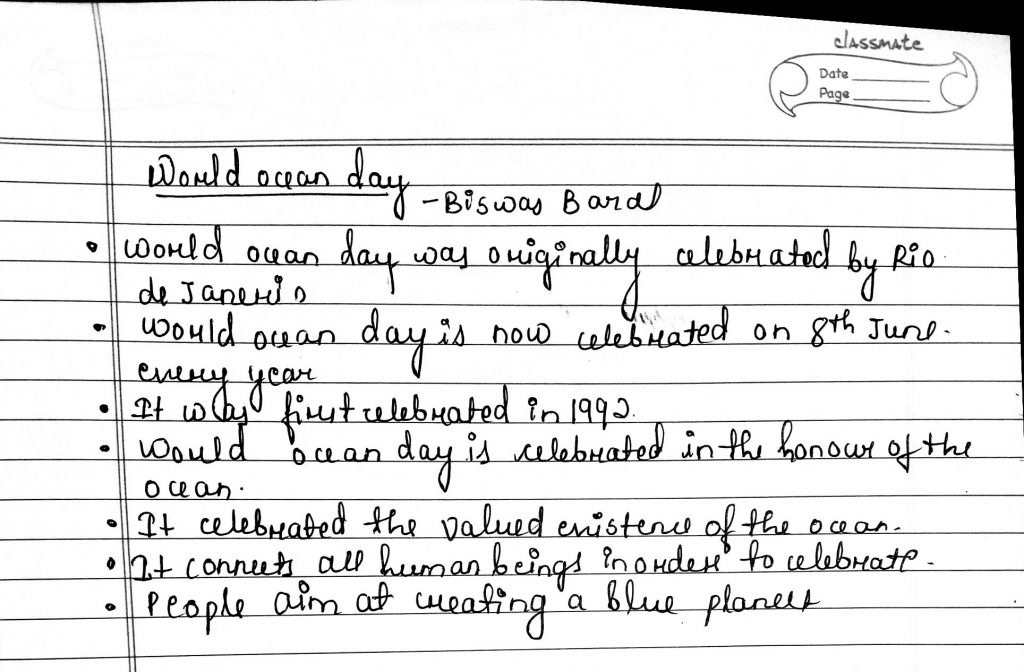 classmate
Date
Page
World ocean day
-Biswas Baral
• World ocean day was originally celebrated by Rio
de Janerio
• World ocean day is now celebrated on 8th June.
every year
• It was first celebrated in 1992.
• World ocean day is celebrated in the honour of the
ocean.
• It celebrated the valued existence of the ocean.
• It connects all human beings in order to celebrate.
• People aim at creating a blue planet